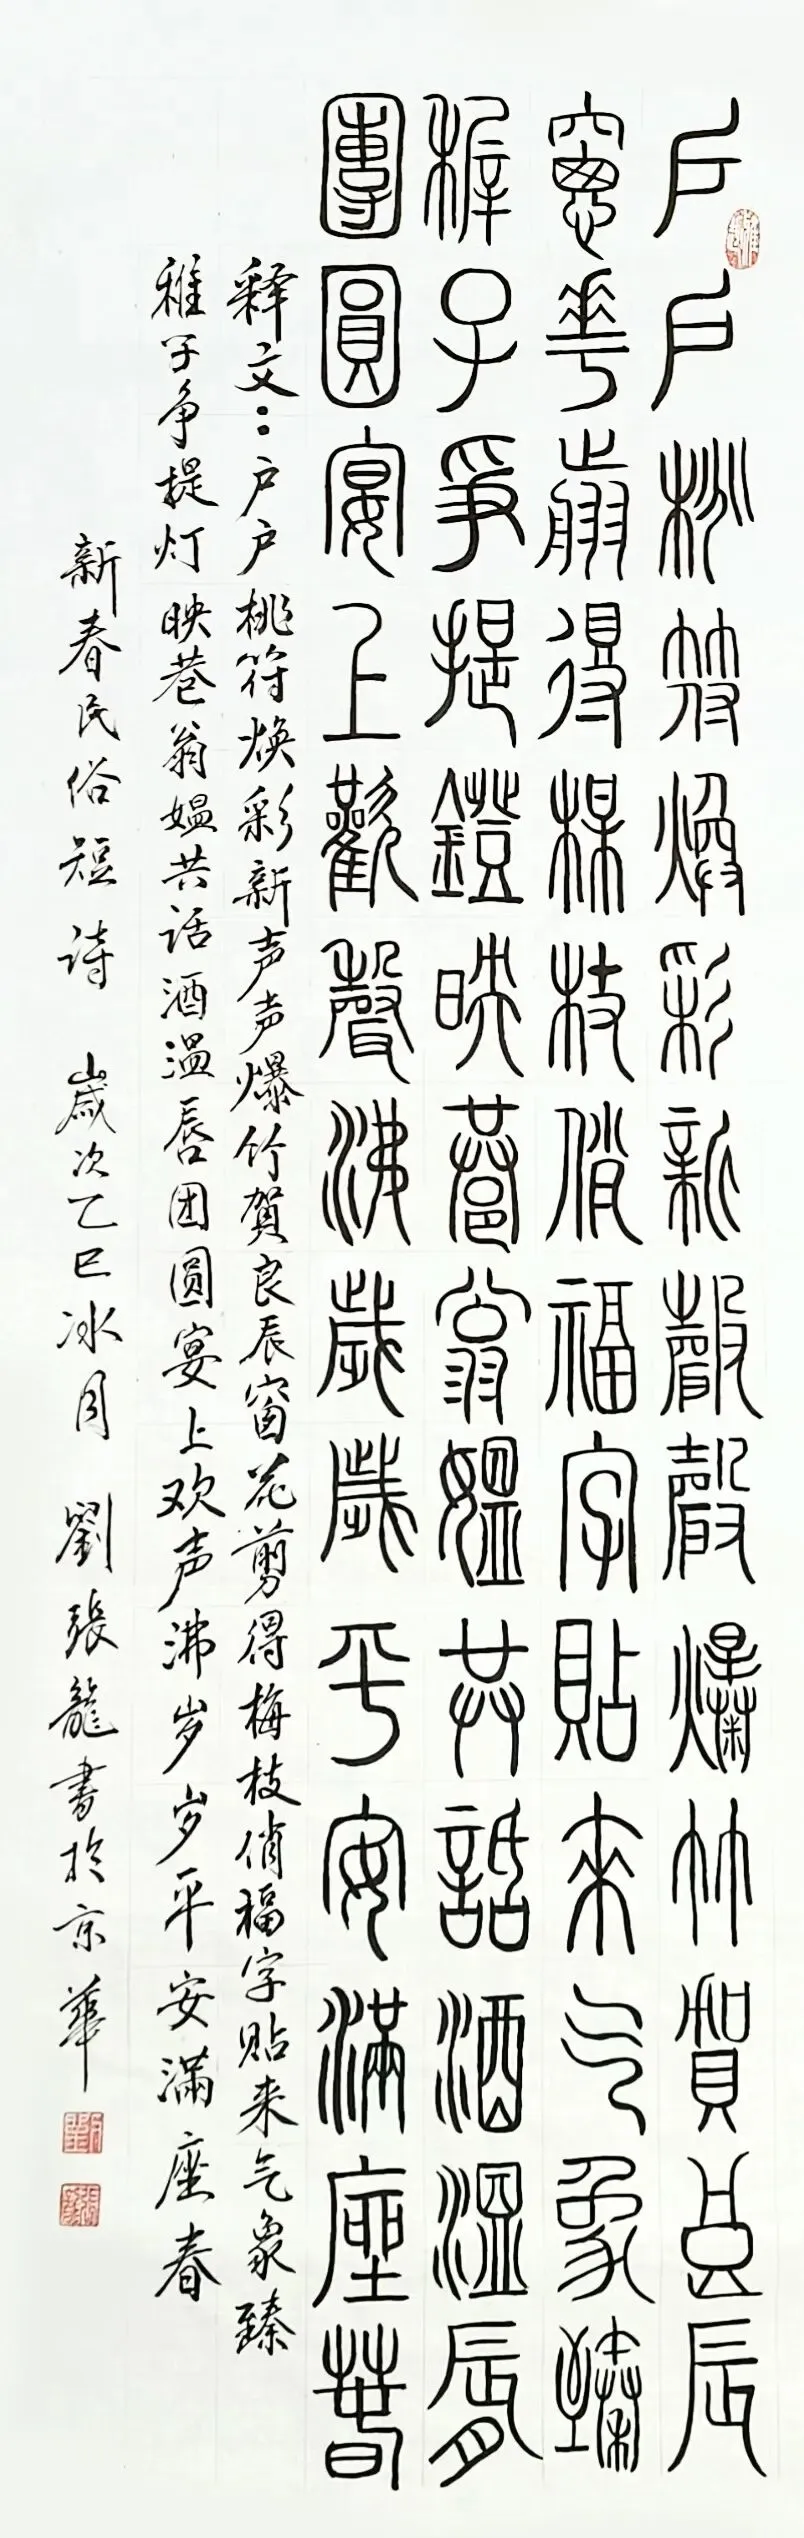 戶戶桃符煥彩新聲聲爆竹賀良辰
窻華翦得楳枝俏福字貼來气象臻
稺子爭提鐙映巷翁媼共話酒溫脣
團圓宴上歡聲沸歲歲平安滿座春
释文：户户桃符焕彩新声声爆竹贺良辰窗花剪得梅枝俏福字贴来气象臻
稚子争提灯映巷翁媪共话酒温唇团圆宴上欢声沸岁岁平安满座春
新春民俗短诗 歲次乙巳冰月 劉張龍書於京華